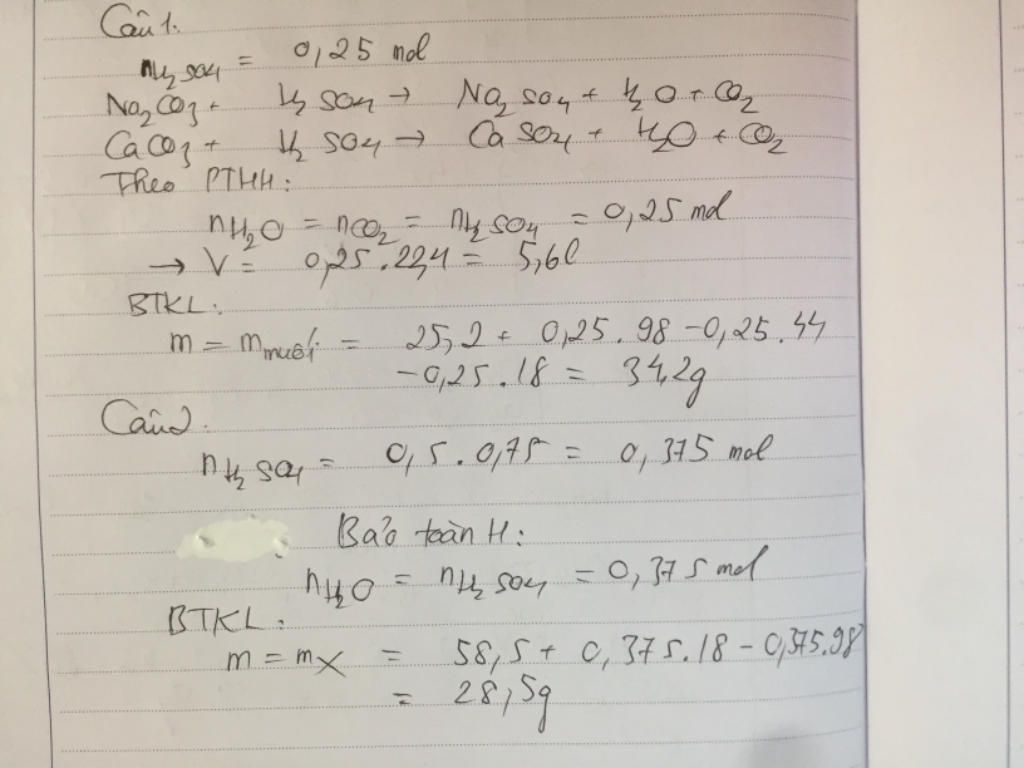 Câu 1.
nH₂SO₄ = 0,25 mol
Na₂CO₃ + H₂SO₄ → Na₂SO₄ + H₂O + CO₂
CaCO₃ + H₂SO₄ → CaSO₄ + H₂O + CO₂
Theo PTHH:
nH₂O = nCO₂ = nH₂SO₄ = 0,25 mol
→ V = 0,25.22,4 = 5,6l
BTKL:
m = m muối = 25,2 + 0,25.98 - 0,25.44
- 0,25.18 = 34,2g
Câu 2.
nH₂SO₄ = 0,5.0,75 = 0,375 mol
Bảo toàn H:
nH₂O = nH₂SO₄ = 0,375 mol
BTKL:
m = mX = 58,5 + 0,375.18 - 0,375.98
= 28,5g